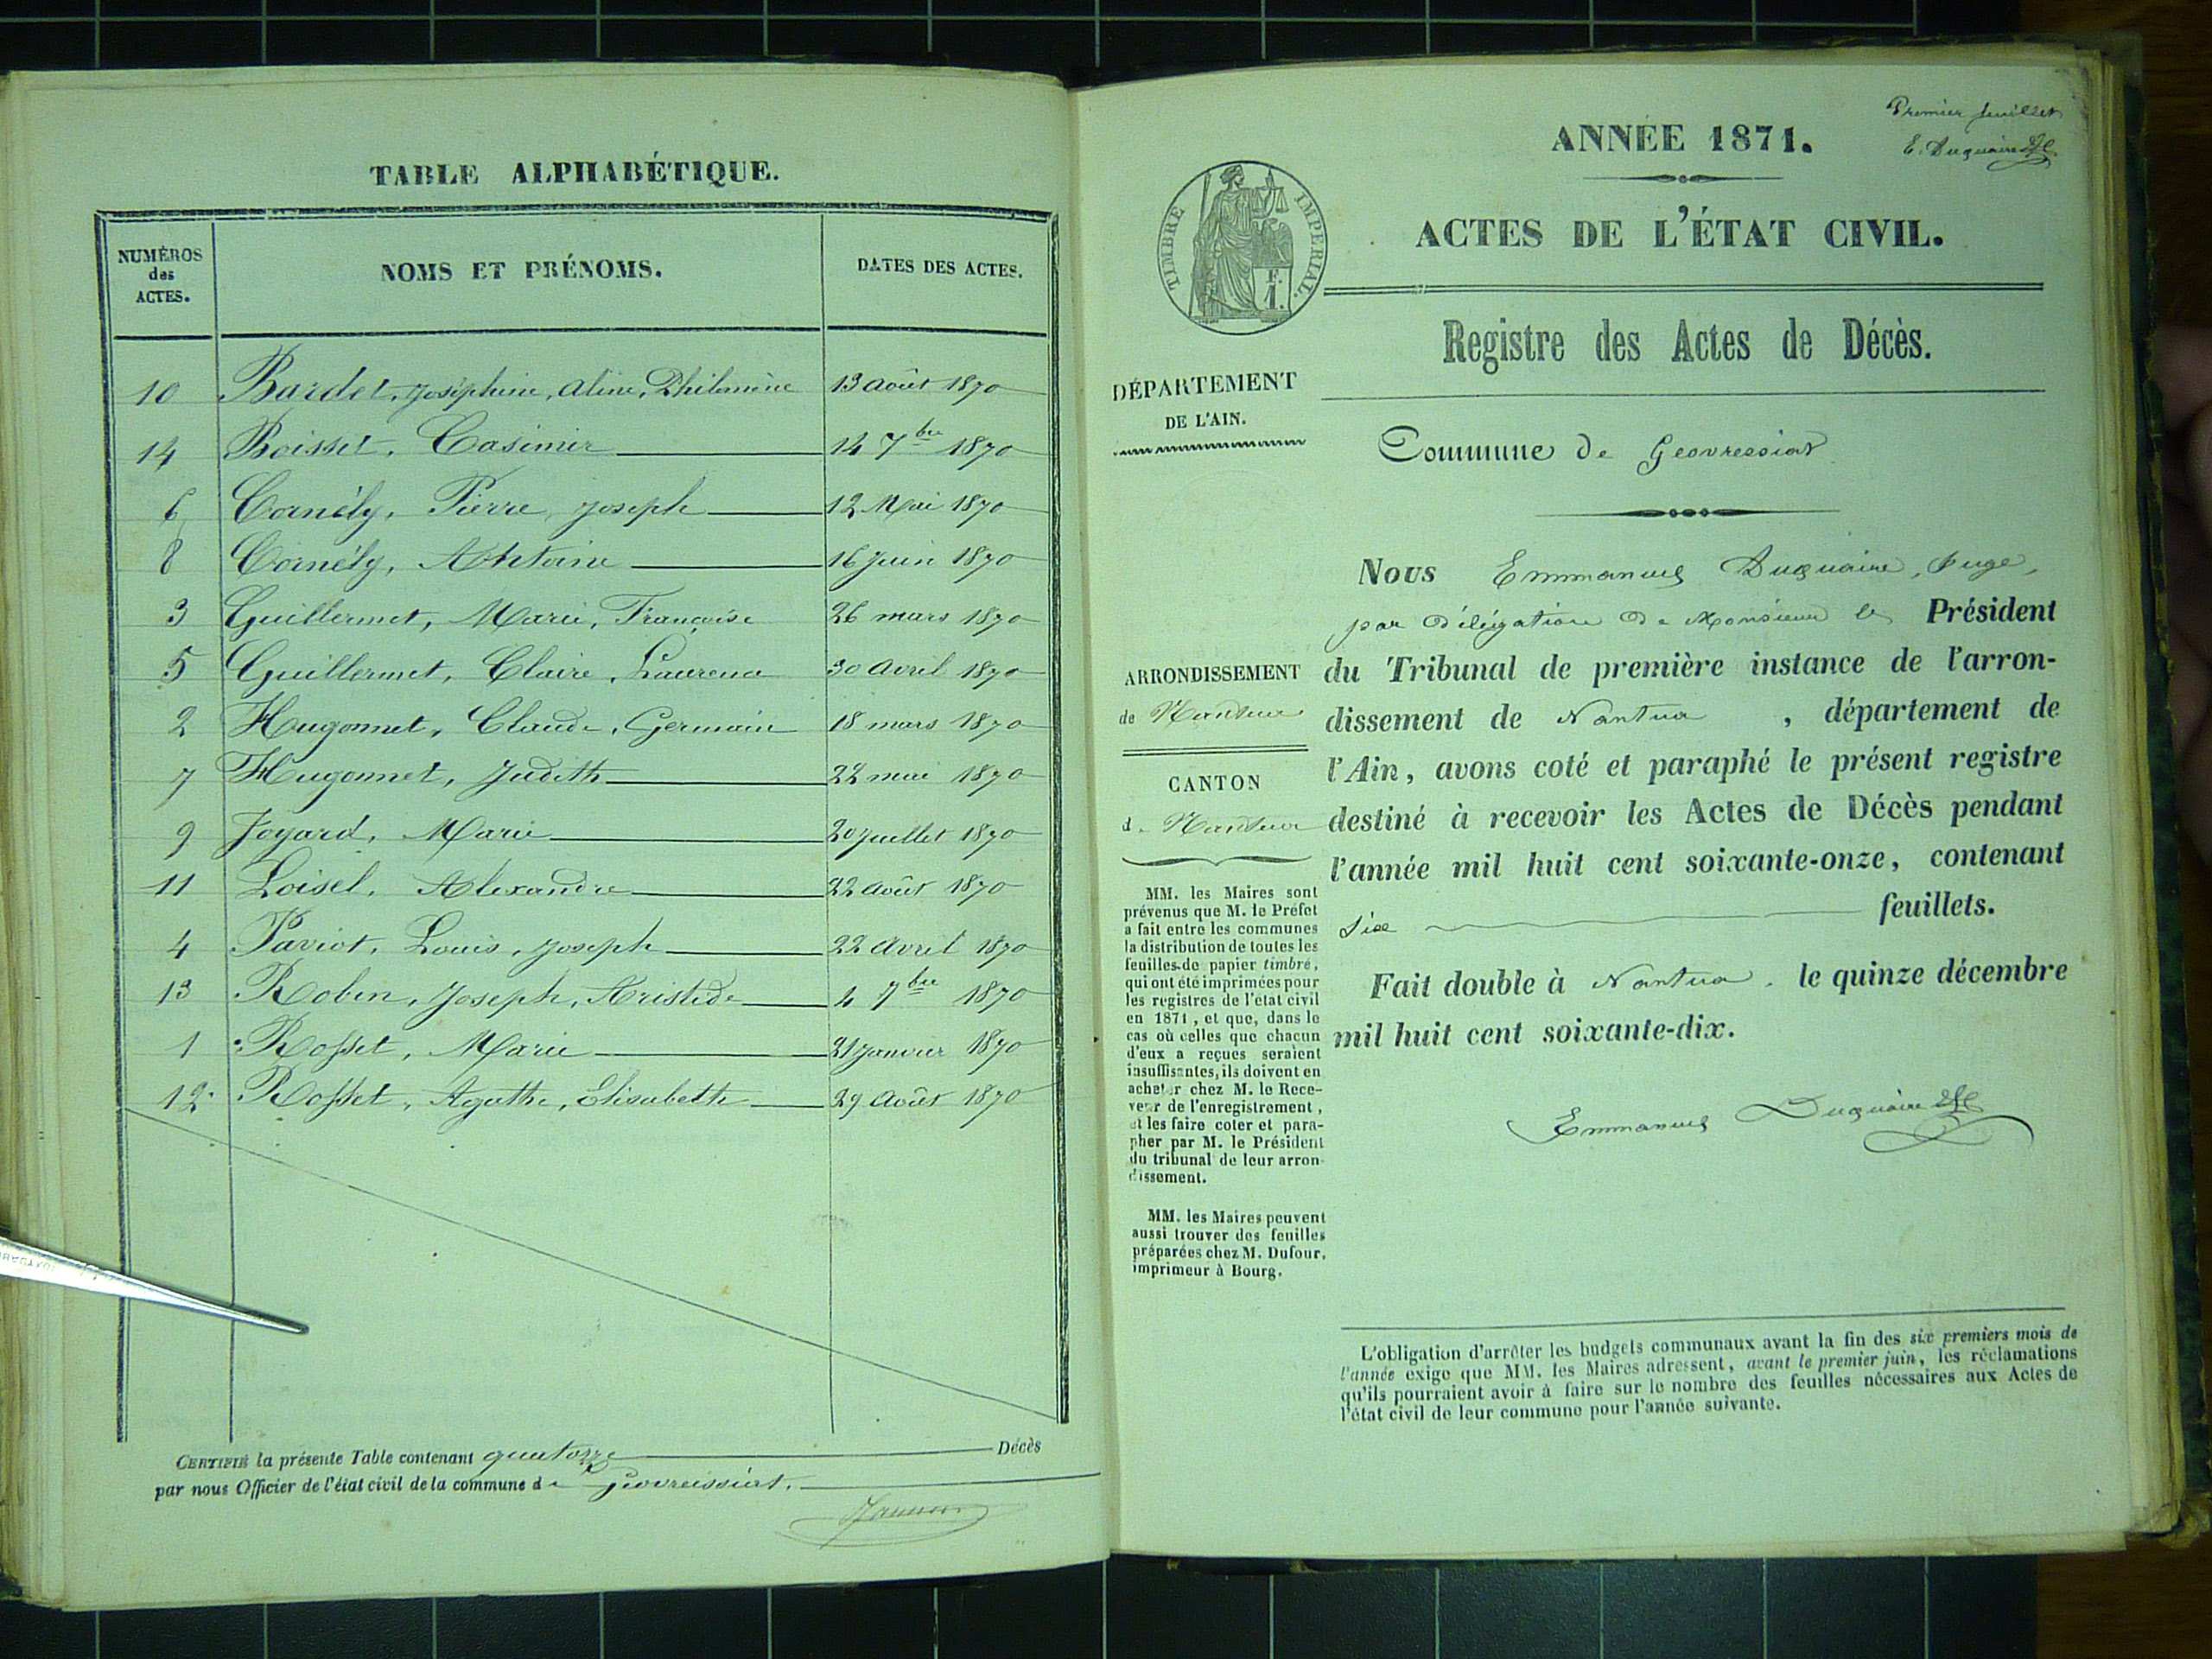 TABLE ALPHABÉTIQUE.
NUMÉROS des ACTES.
NOMS ET PRÉNOMS.
DATES DES ACTES.
10 Bardet, Joséphine, Aline, Philomène 13 août 1870
14 Boisset, Casimir 14 7bre 1870
6 Cornély, Pierre, Joseph 12 Mai 1870
8 Cornély, Antoine 16 Juin 1870
3 Guillermet, Marie, Françoise 26 mars 1870
5 Guillermet, Claire, Laurence 30 avril 1870
2 Hugonnet, Claude, Germain 18 mars 1870
7 Hugonnet, Judith 22 mai 1870
9 Joyard, Marie 20 Juillet 1870
11 Loisel, Alexandre 22 août 1870
4 Paviot, Louis, Joseph 22 avril 1870
13 Robin, Joseph, Aristide 4 7bre 1870
1 Rosset, Marie 21 Janvier 1870
12 Rosset, Agathe, Elisabette 29 Août 1870
CERTIFIÉ la présente Table contenant quatorze Décès
par nous Officier de l'état civil de la commune de Géovreissiat.
Premier feuillet
E. Duquaire
ANNÉE 1871.
ACTES DE L'ÉTAT CIVIL.
TIMBRE IMPERIAL.
Registre des Actes de Décès.
DÉPARTEMENT
DE L'AIN.
Commune de Geovressiat
ARRONDISSEMENT
de Nantua
CANTON
de Nantua
MM. les Maires sont
prévenus que M. le Préfet
a fait entre les communes
la distribution de toutes les
feuilles de papier timbré,
qui ont été imprimées pour
les registres de l'état civil
en 1871, et que, dans le
cas où celles que chacun
d'eux a reçues seraient
insuffisantes, ils doivent en
acheter chez M. le Rece-
veur de l'enregistrement,
et les faire coter et para-
pher par M. le Président
du tribunal de leur arron-
dissement.
MM. les Maires peuvent
aussi trouver des feuilles
préparées chez M. Dufour,
imprimeur à Bourg.
Nous Emmanuel Duquaire, Juge,
par délégation de Monsieur le Président
du Tribunal de première instance de l'arron-
dissement de Nantua , département de
l'Ain, avons coté et paraphé le présent registre
destiné à recevoir les Actes de Décès pendant
l'année mil huit cent soixante-onze, contenant
six feuillets.
Fait double à Nantua, le quinze décembre
mil huit cent soixante-dix.
Emmanuel Duquaire
L'obligation d'arrêter les budgets communaux avant la fin des six premiers mois de
l'année exige que MM. les Maires adressent, avant le premier juin, les réclamations
qu'ils pourraient avoir à faire sur le nombre des feuilles nécessaires aux Actes de
l'état civil de leur commune pour l'année suivante.